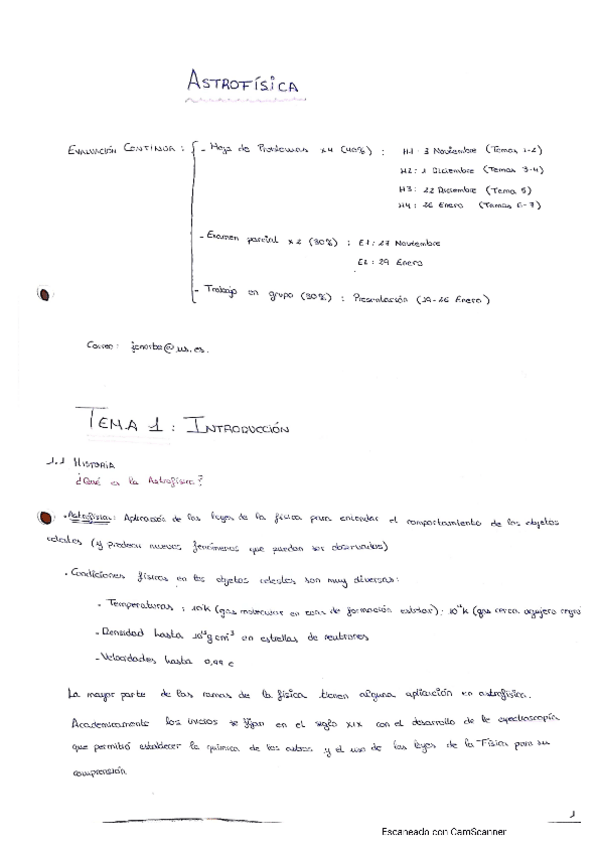 ASTROFÍSICA
EVALUACIÓN CONTINUA: - Hoja de Problemas x4 (40%) : H1: 3 Noviembre (Temas 1-2)
H2: 1 Diciembre (Temas 3-4)
H3: 22 Diciembre (Tema 5)
H4: 26 Enero (Temas 6-7)
- Examen parcial x2 (30%) : E1: 27 Noviembre
E2: 29 Enero
- Trabajo en grupo (30%) : Presentación (    Enero)
Correo:
TEMA 1: INTRODUCCIÓN
1.1 HISTORIA
¿Qué es la Astrofísica?
- Astrofísica: Aplicación de las leyes de la física para entender el comportamiento de los objetos
celestes (y predecir nuevos fenómenos que puedan ser observados)
- Condiciones físicas en los objetos celestes son muy diversas:
- Temperaturas: 10K (gas molecular en     de formación estelar);     K (gas cerca agujero negro
- Densidad hasta     g cm⁻³ en estrellas de neutrones
- Velocidades hasta 0,99 c
La mayor parte de las ramas de la física tienen alguna aplicación en astrofísica.
Academicamente los inicios se fijan en el siglo XIX con el desarrollo de la espectroscopía
que permitió establecer la química de los astros y el uso de las leyes de la Física para su
comprensión
1
Escaneado con CamScanner